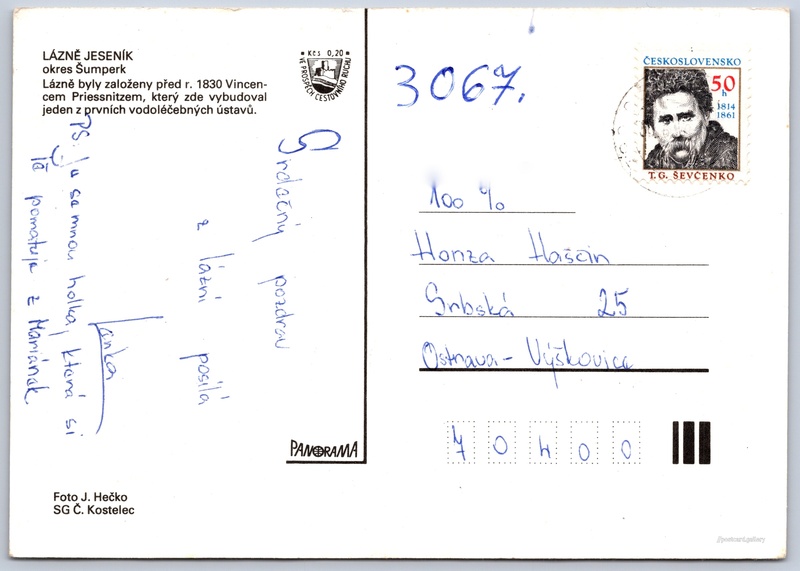 LÁZNĚ JESENÍK
okres Šumperk
Lázně byly založeny před r. 1830 Vincen-
cem Priessnitzem, který zde vybudoval
jeden z prvních vodoléčebných ústavů.
Kčs 0,20
VE PROSPĚCH CESTOVNÍHO RUCHU
Srdečný pozdrav
z lázní posílá
Lenka
PS: Je se mnou holka, která si
Tě pamatuje z Mariánek.
PANORAMA
Foto J. Hečko
SG Č. Kostelec
3067.
ČESKOSLOVENSKO
50
h
1814
1861
T. G. ŠEVČENKO
100 %
Honza Haščin
Srbská 25
Ostrava - Výškovice
70400
postcard.gallery